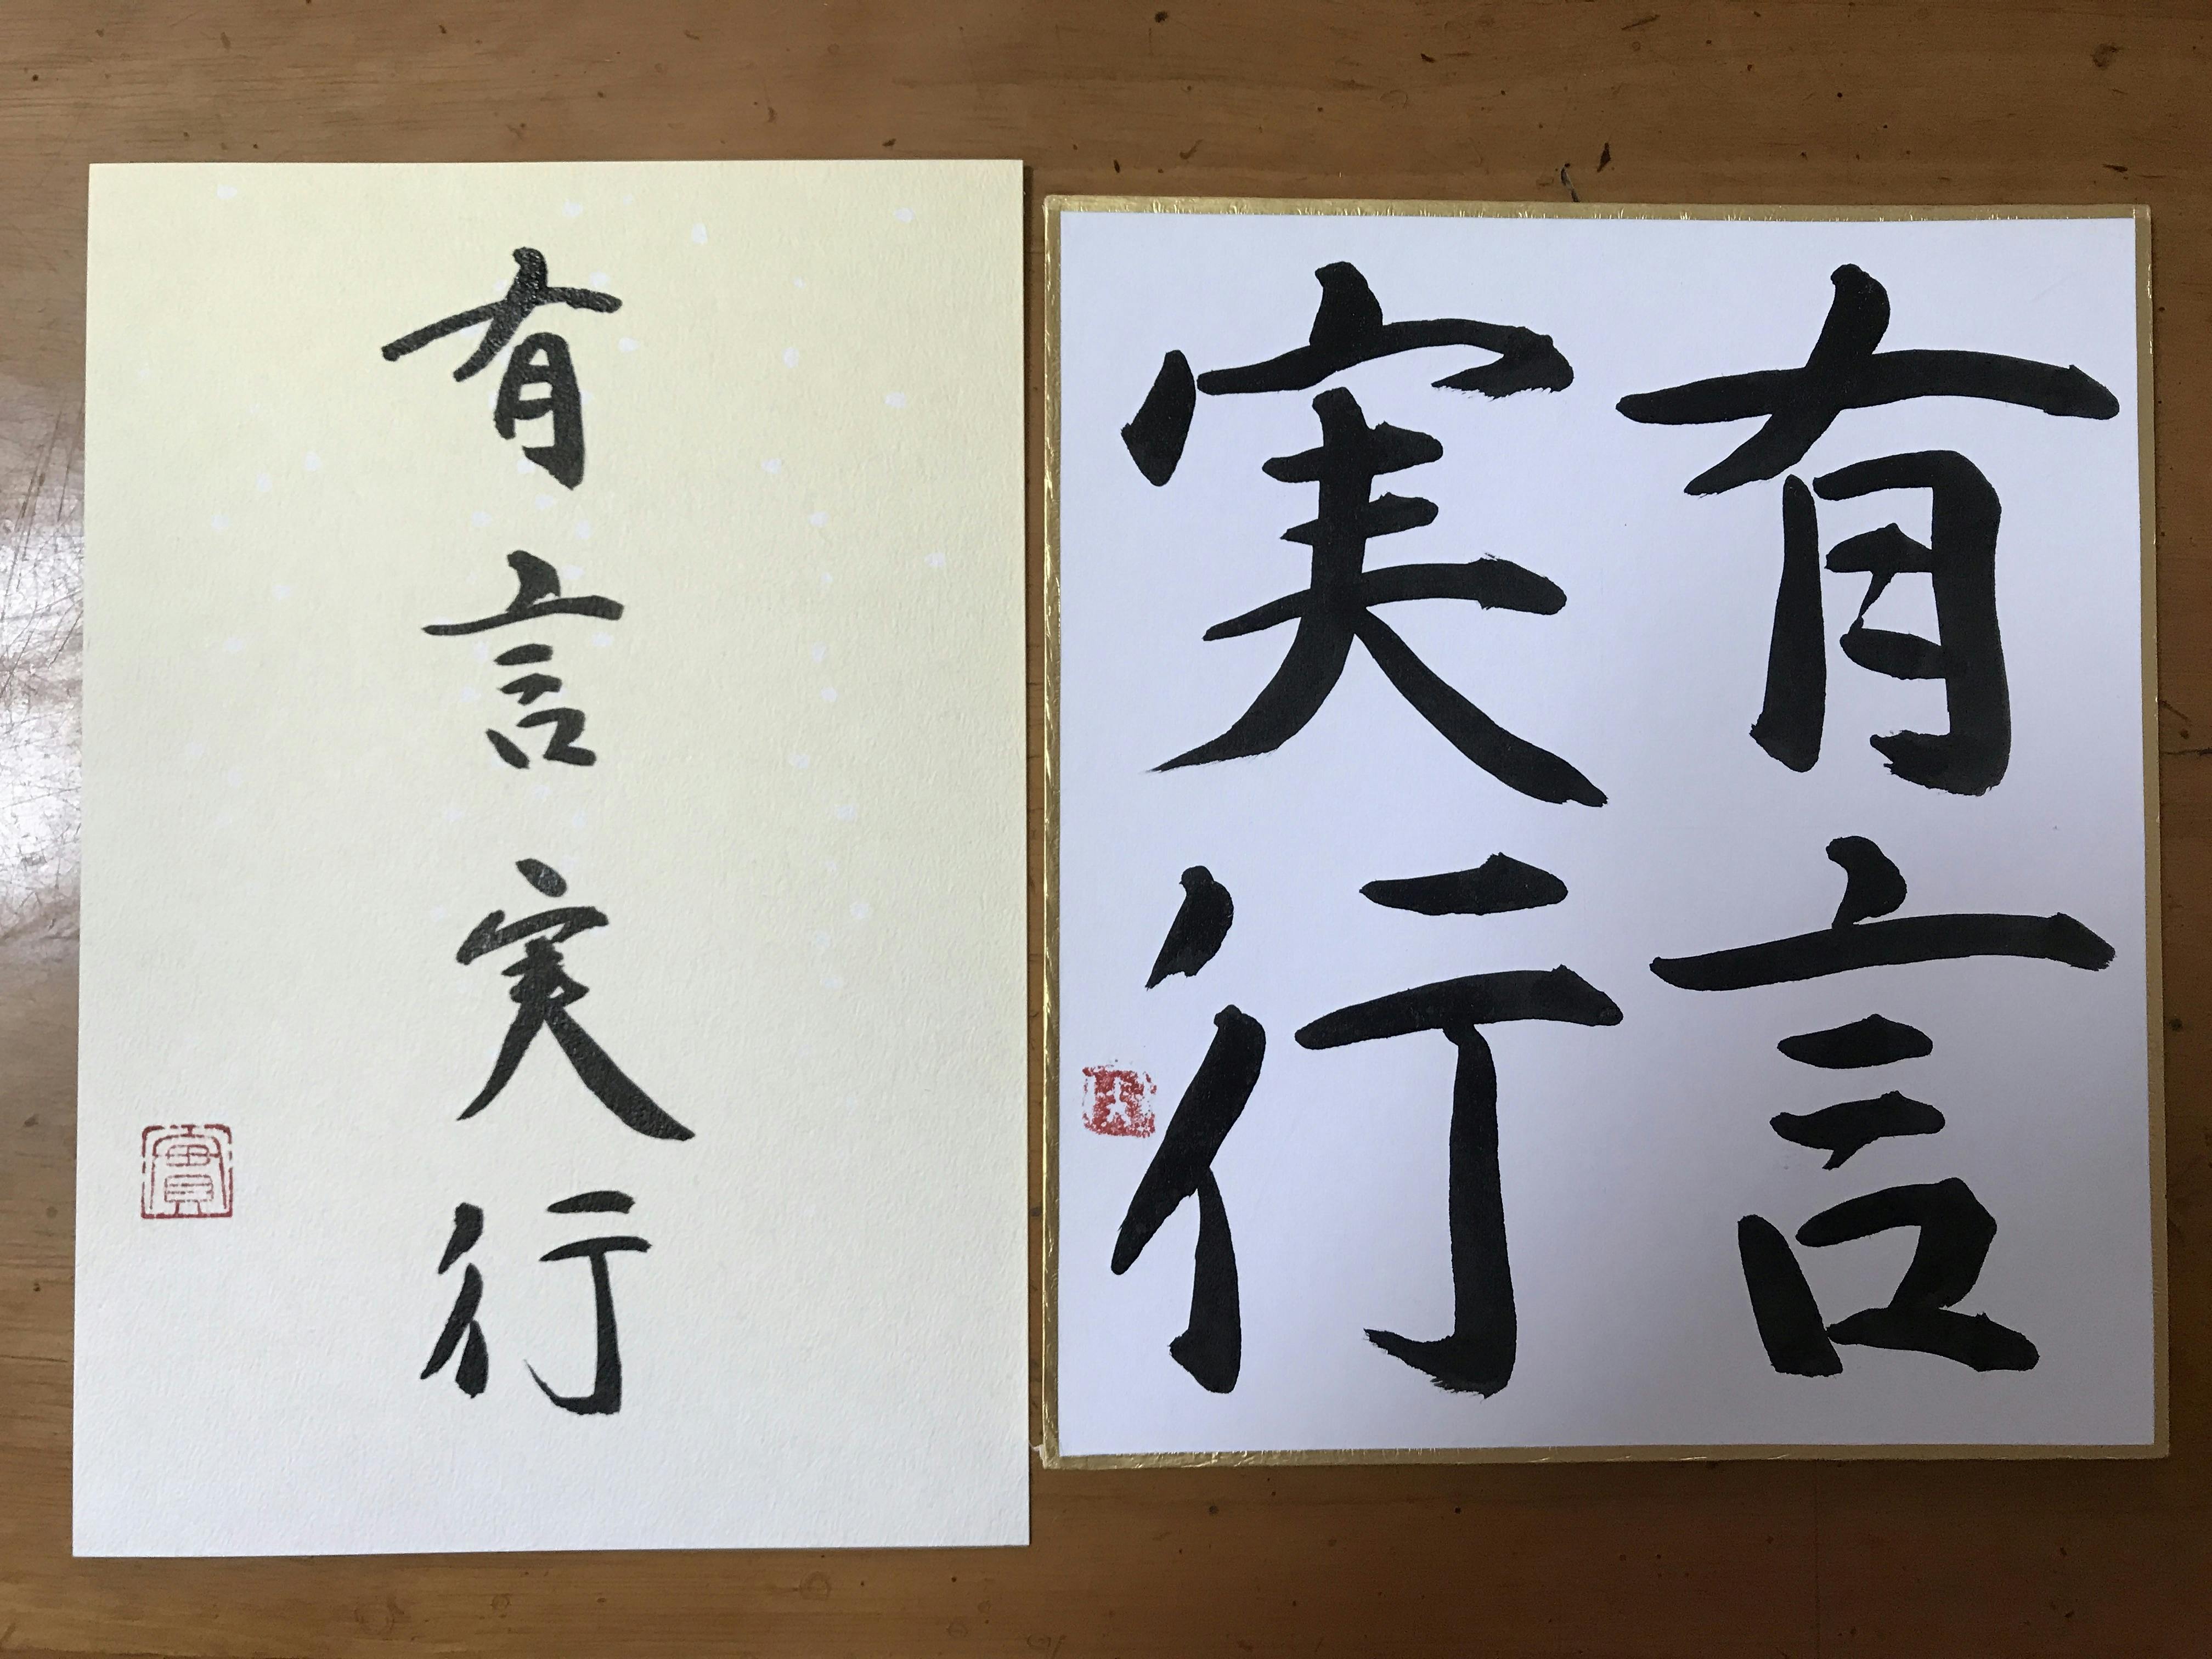 有言実行
有言
実行
實